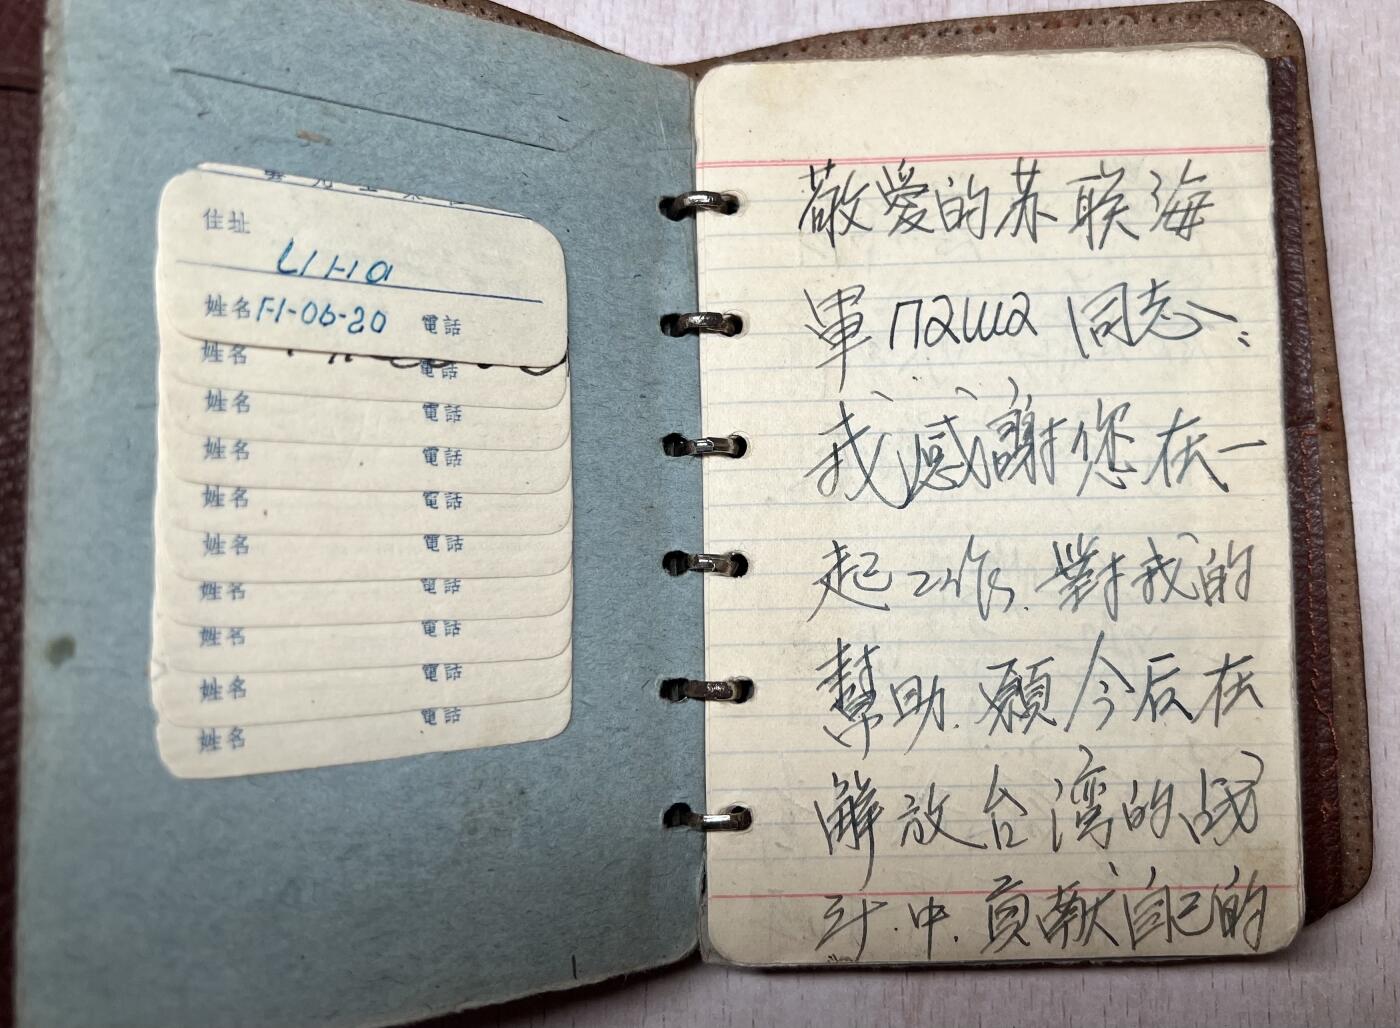 住址
LI HA
姓名 F1-06-20 電話
姓名 電話
姓名 電話
姓名 電話
姓名 電話
姓名 電話
姓名 電話
姓名 電話
姓名 電話
姓名
敬愛的苏联海
軍 паша 同志:
我感謝您在一
起工作.對我的
幫助.願今后在
解放台湾的战
斗.中.貢献自己的